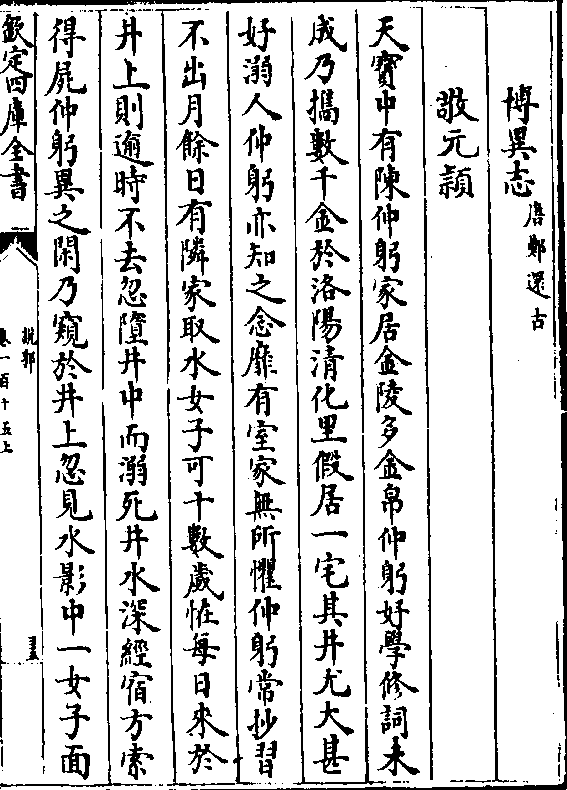 博異志 唐鄭還古
敬元穎
天寳中有陳仲躬家居金陵多金帛仲躬好學修詞未
成乃攜數千金於洛陽清化里假居一宅其井尤大甚
好溺人仲躬亦知之念靡有室家無所懼仲躬常抄習
不出月餘日有隣家取水女子可十數歲恠每日來於
井上則逾時不去忽墮井中而溺死井水深經宿方索
得屍仲躬異之閑乃窺於井上忽見水影中一女子面
欽定四庫全書
說郛
卷一百十五上